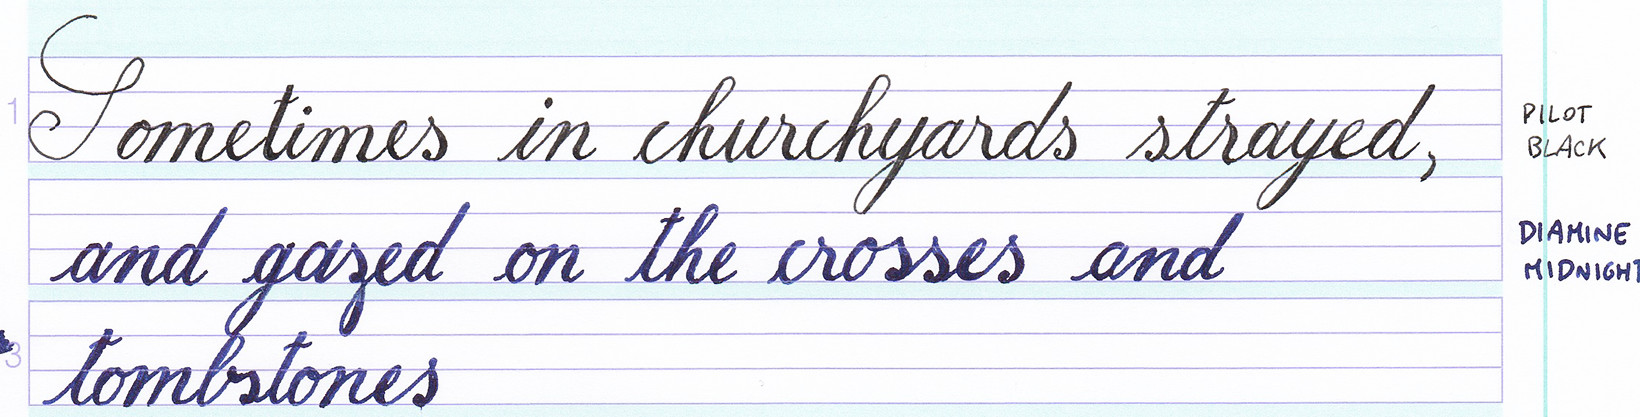 1
Sometimes in churchyards strayed,
PILOT
BLACK
and gazed on the crosses and
DIAMINE
MIDNIGHT
3
tombstones